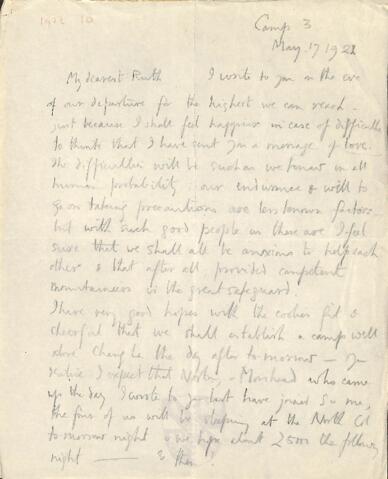 1922 10
Camp 3
May 17 1922
My dearest Ruth I write to you on the eve
of our departure for the highest we can reach -
just because I shall feel happier in case of difficulties
to think that I have sent you a message of love.
The difficulties will be such as we know in all
human probability; our endurance & will to
go on taking precautions are less known factors
but with such good people as these are I feel
sure that we shall all be anxious to help each
other & that after all, provided competent
mountaineers is the great safeguard.
I have very good hopes with the coolies fit &
cheerful that we shall establish a camp well
above Chang La the day after to-morrow - you
realise I expect that Norton & Morshead who came
up the day I wrote to you last have joined S & me,
the four of us will be sleeping at the North Col
to-morrow night & we hope about 25000 the following
night — & then